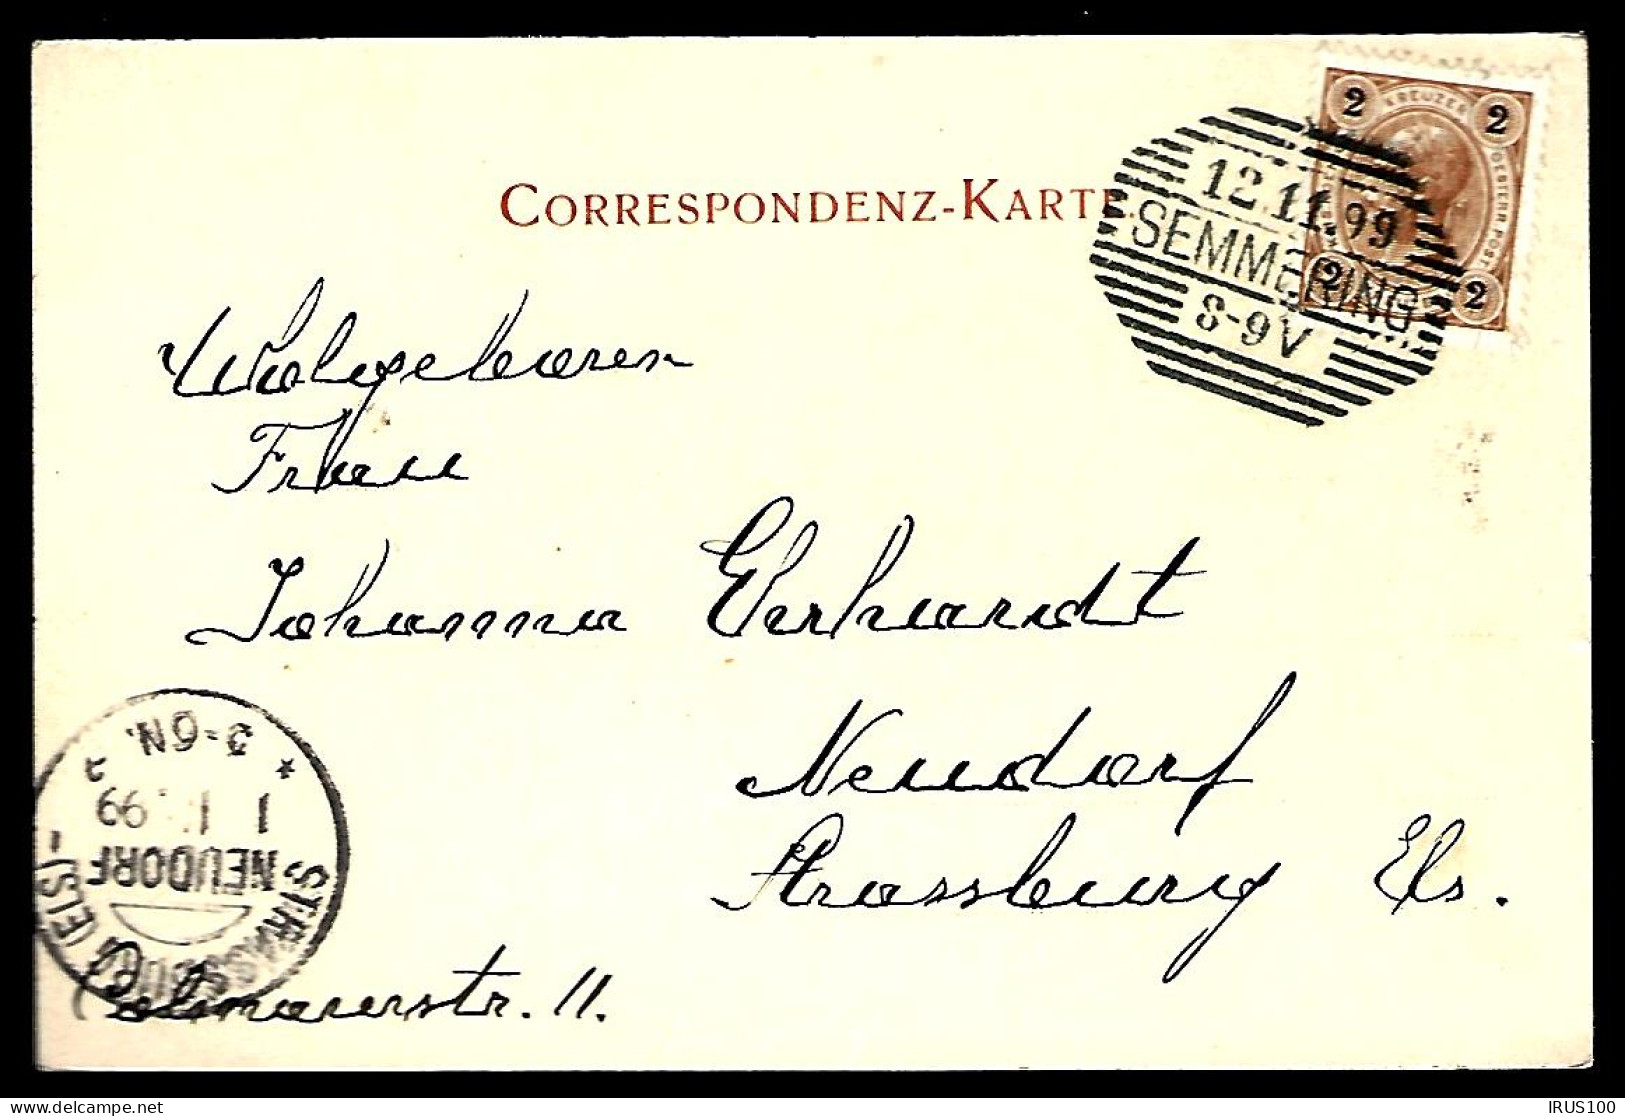 CORRESPONDENZ-KARTE.
2 KREUZER 2
OESTERR. POST.
2 2
12.11.99
SEMMERING
8-9V
Wolgeboren
Frau
Johanna Ehrhardt
Neudorf
Strassburg Els.
Colmarerstr. 11.
STRASSBURG (ELS.)-
NEUDORF
99
3-6N.
delcampe.net
IRUS100